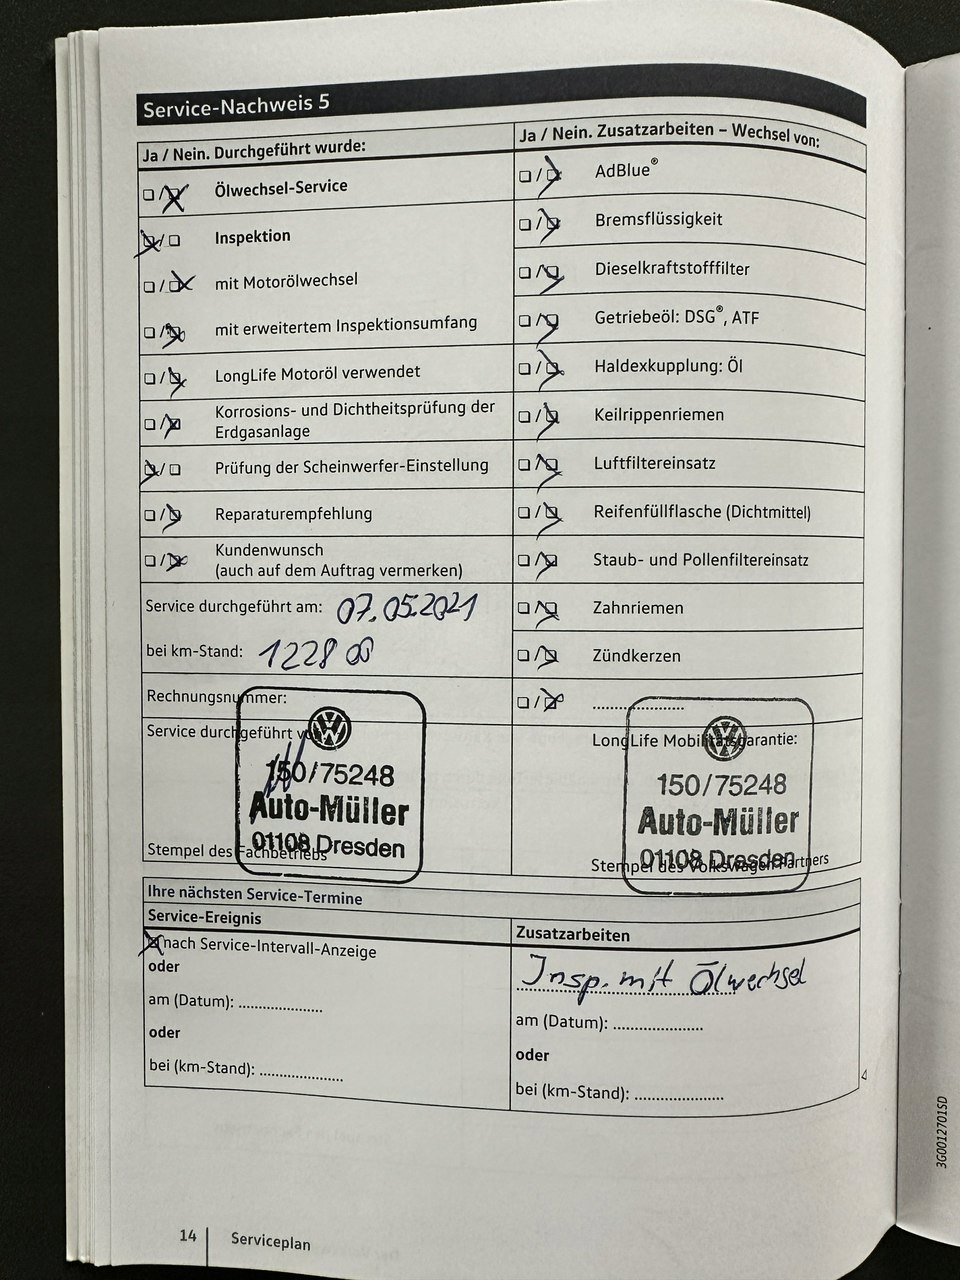 Service-Nachweis 5
Ja / Nein. Durchgeführt wurde:
Ölwechsel-Service
Inspektion
mit Motorölwechsel
mit erweitertem Inspektionsumfang
LongLife Motoröl verwendet
Korrosions- und Dichtheitsprüfung der
Erdgasanlage
Prüfung der Scheinwerfer-Einstellung
Reparaturempfehlung
Kundenwunsch
(auch auf dem Auftrag vermerken)
Service durchgeführt am: 07.05.2021
bei km-Stand: 122800
Rechnungsnummer:
Service durchgeführt von:
VW
150/75248
Auto-Müller
01108 Dresden
Stempel des Fachbetriebs
Ja / Nein. Zusatzarbeiten – Wechsel von:
AdBlue®
Bremsflüssigkeit
Dieselkraftstofffilter
Getriebeöl: DSG®, ATF
Haldexkupplung: Öl
Keilrippenriemen
Luftfiltereinsatz
Reifenfüllflasche (Dichtmittel)
Staub- und Pollenfiltereinsatz
Zahnriemen
Zündkerzen
......................
LongLife Mobilitätsgarantie:
VW
150/75248
Auto-Müller
01108 Dresden
Stempel des Volkswagen Partners
Ihre nächsten Service-Termine
Service-Ereignis
nach Service-Intervall-Anzeige
oder
am (Datum): ....................
oder
bei (km-Stand): ....................
Zusatzarbeiten
Insp. mit Ölwechsel
am (Datum): ......................
oder
bei (km-Stand): ......................
14
Serviceplan
3G0012701SD